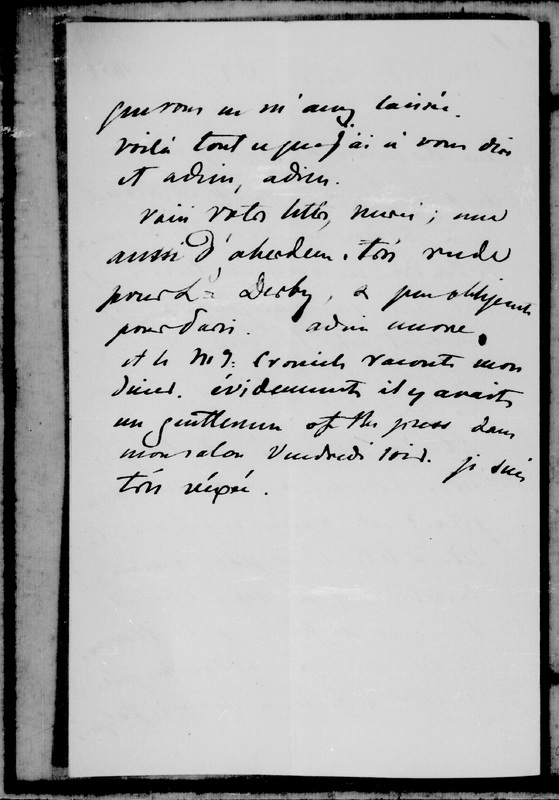 que vous ne m'avez laissée.
voilà tout ce que j'ai à vous dire
et adieu, adieu.
voici votre lettre, merci; une
aussi d'aberdeen. très rude
pour Ld Derby, & peu obligeante
pour Paris. adieu encore.
et le M g: Cronicle raconte mon
diner. évidemment il y avait
un gentleman of the press dans
mon salon Vendredi soir. je suis
très vexée.